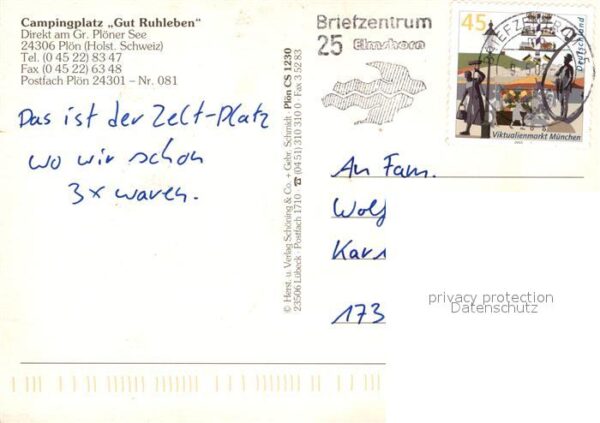 Campingplatz „Gut Ruhleben"
Direkt am Gr. Plöner See
24306 Plön (Holst. Schweiz)
Tel. (0 45 22) 83 47
Fax (0 45 22) 63 48
Postfach Plön 24301 – Nr. 081
Das ist der Zelt-Platz
wo wir schon
3x waren.
© Herst. u. Verlag Schöning & Co. + Gebr. Schmidt · Plön CS 1230
23506 Lübeck · Postfach 1710 · ☎ (04 51) 310 310 0 · Fax 3 52 83
Briefzentrum
25 Elmshorn
45
Deutschland
Viktualienmarkt München
An Fam.
Wolf
Kar
173
privacy protection
Datenschutz